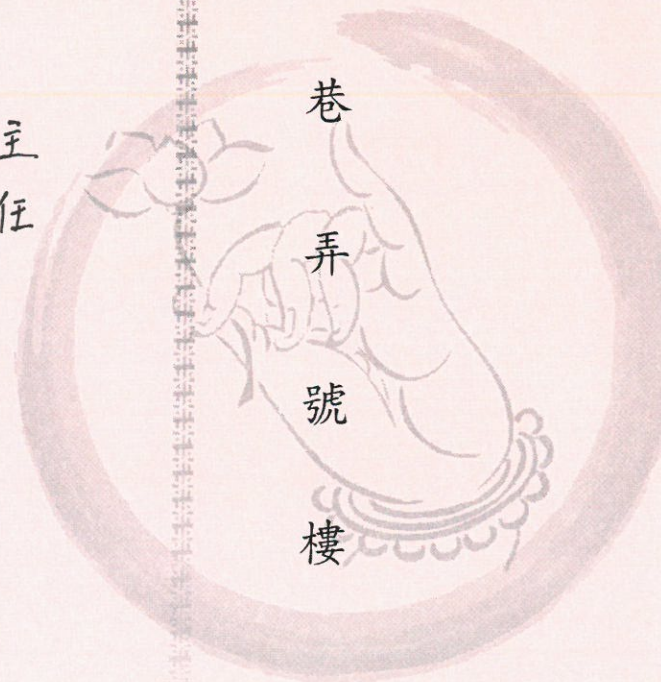 巷弄號樓
主任